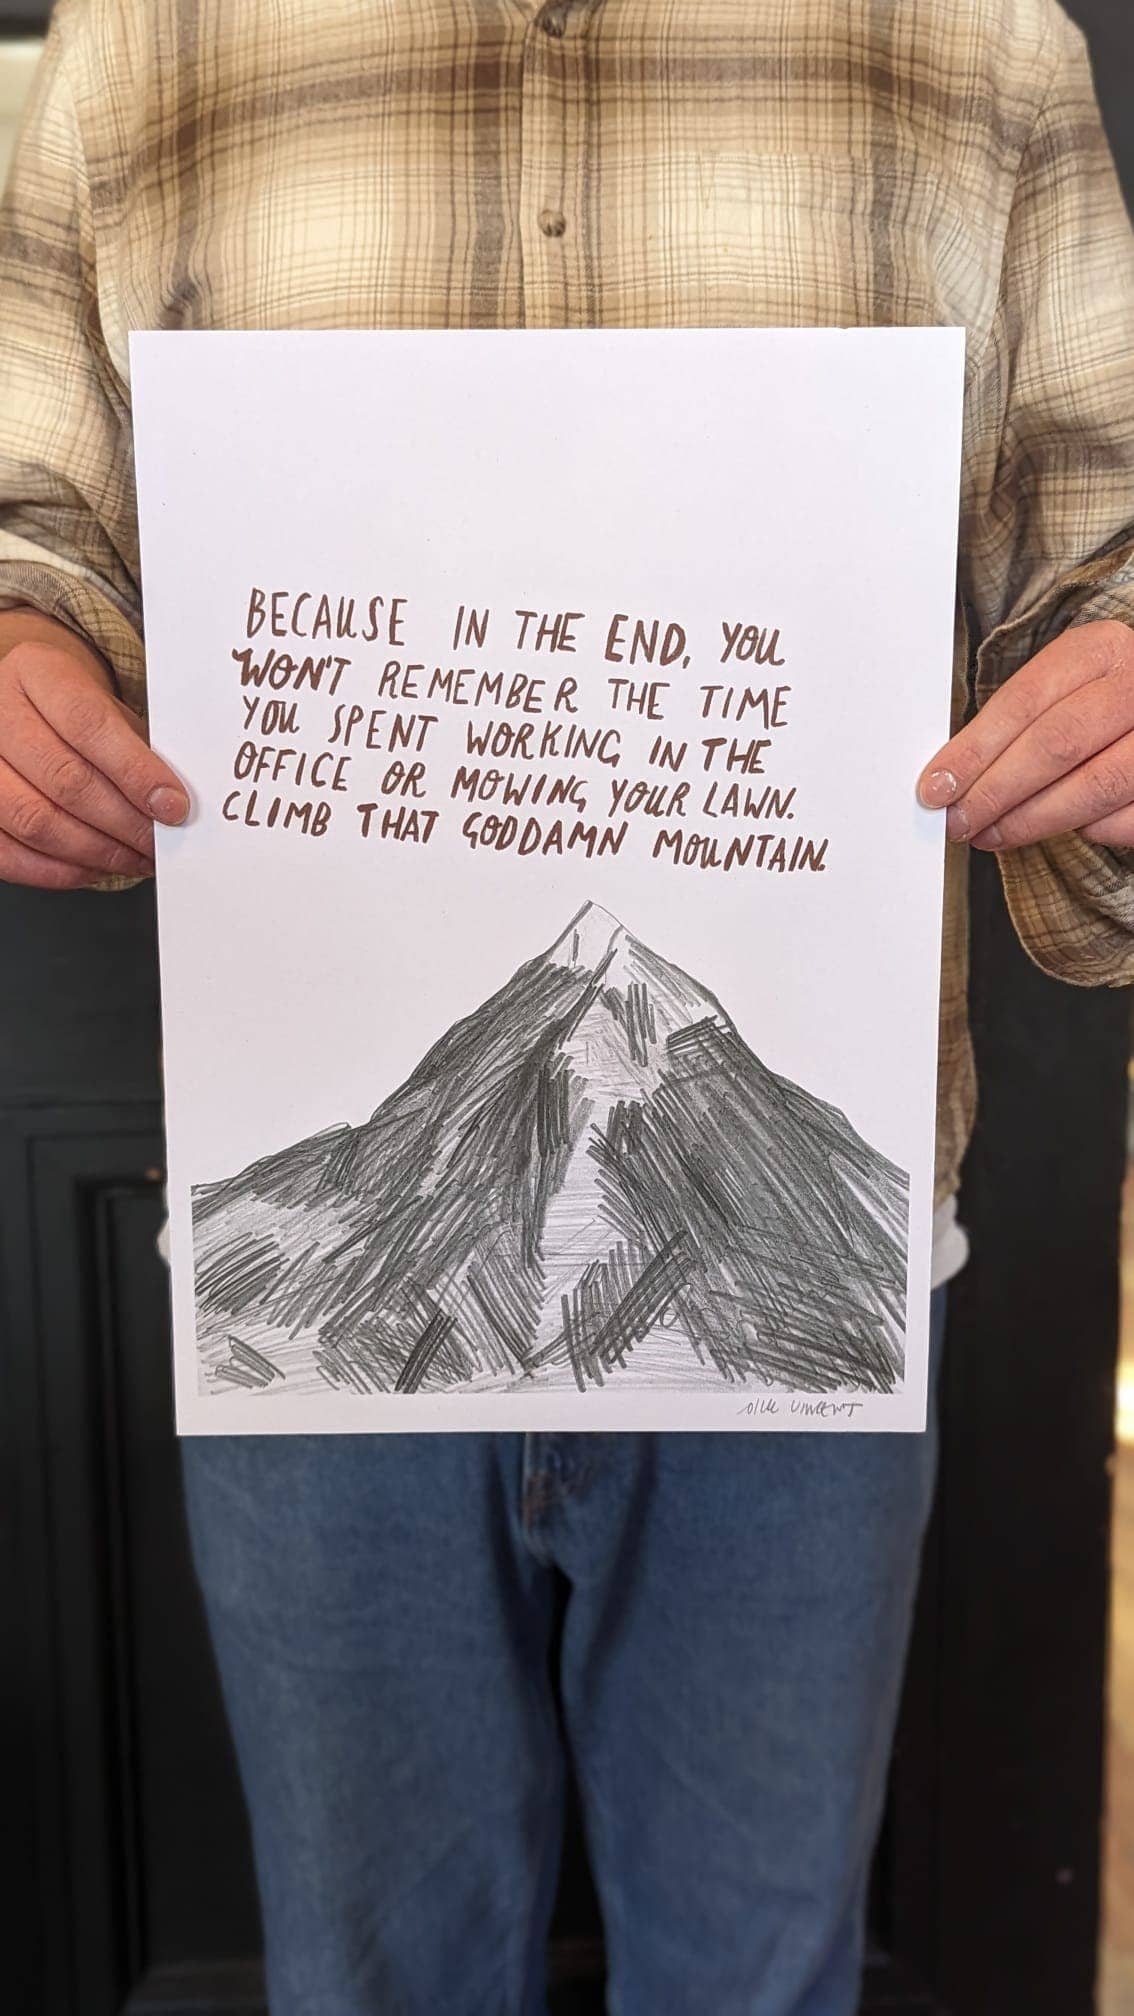 BECAUSE IN THE END, YOU
WON'T REMEMBER THE TIME
YOU SPENT WORKING IN THE
OFFICE OR MOWING YOUR LAWN.
CLIMB THAT GODDAMN MOUNTAIN.
VINCENT